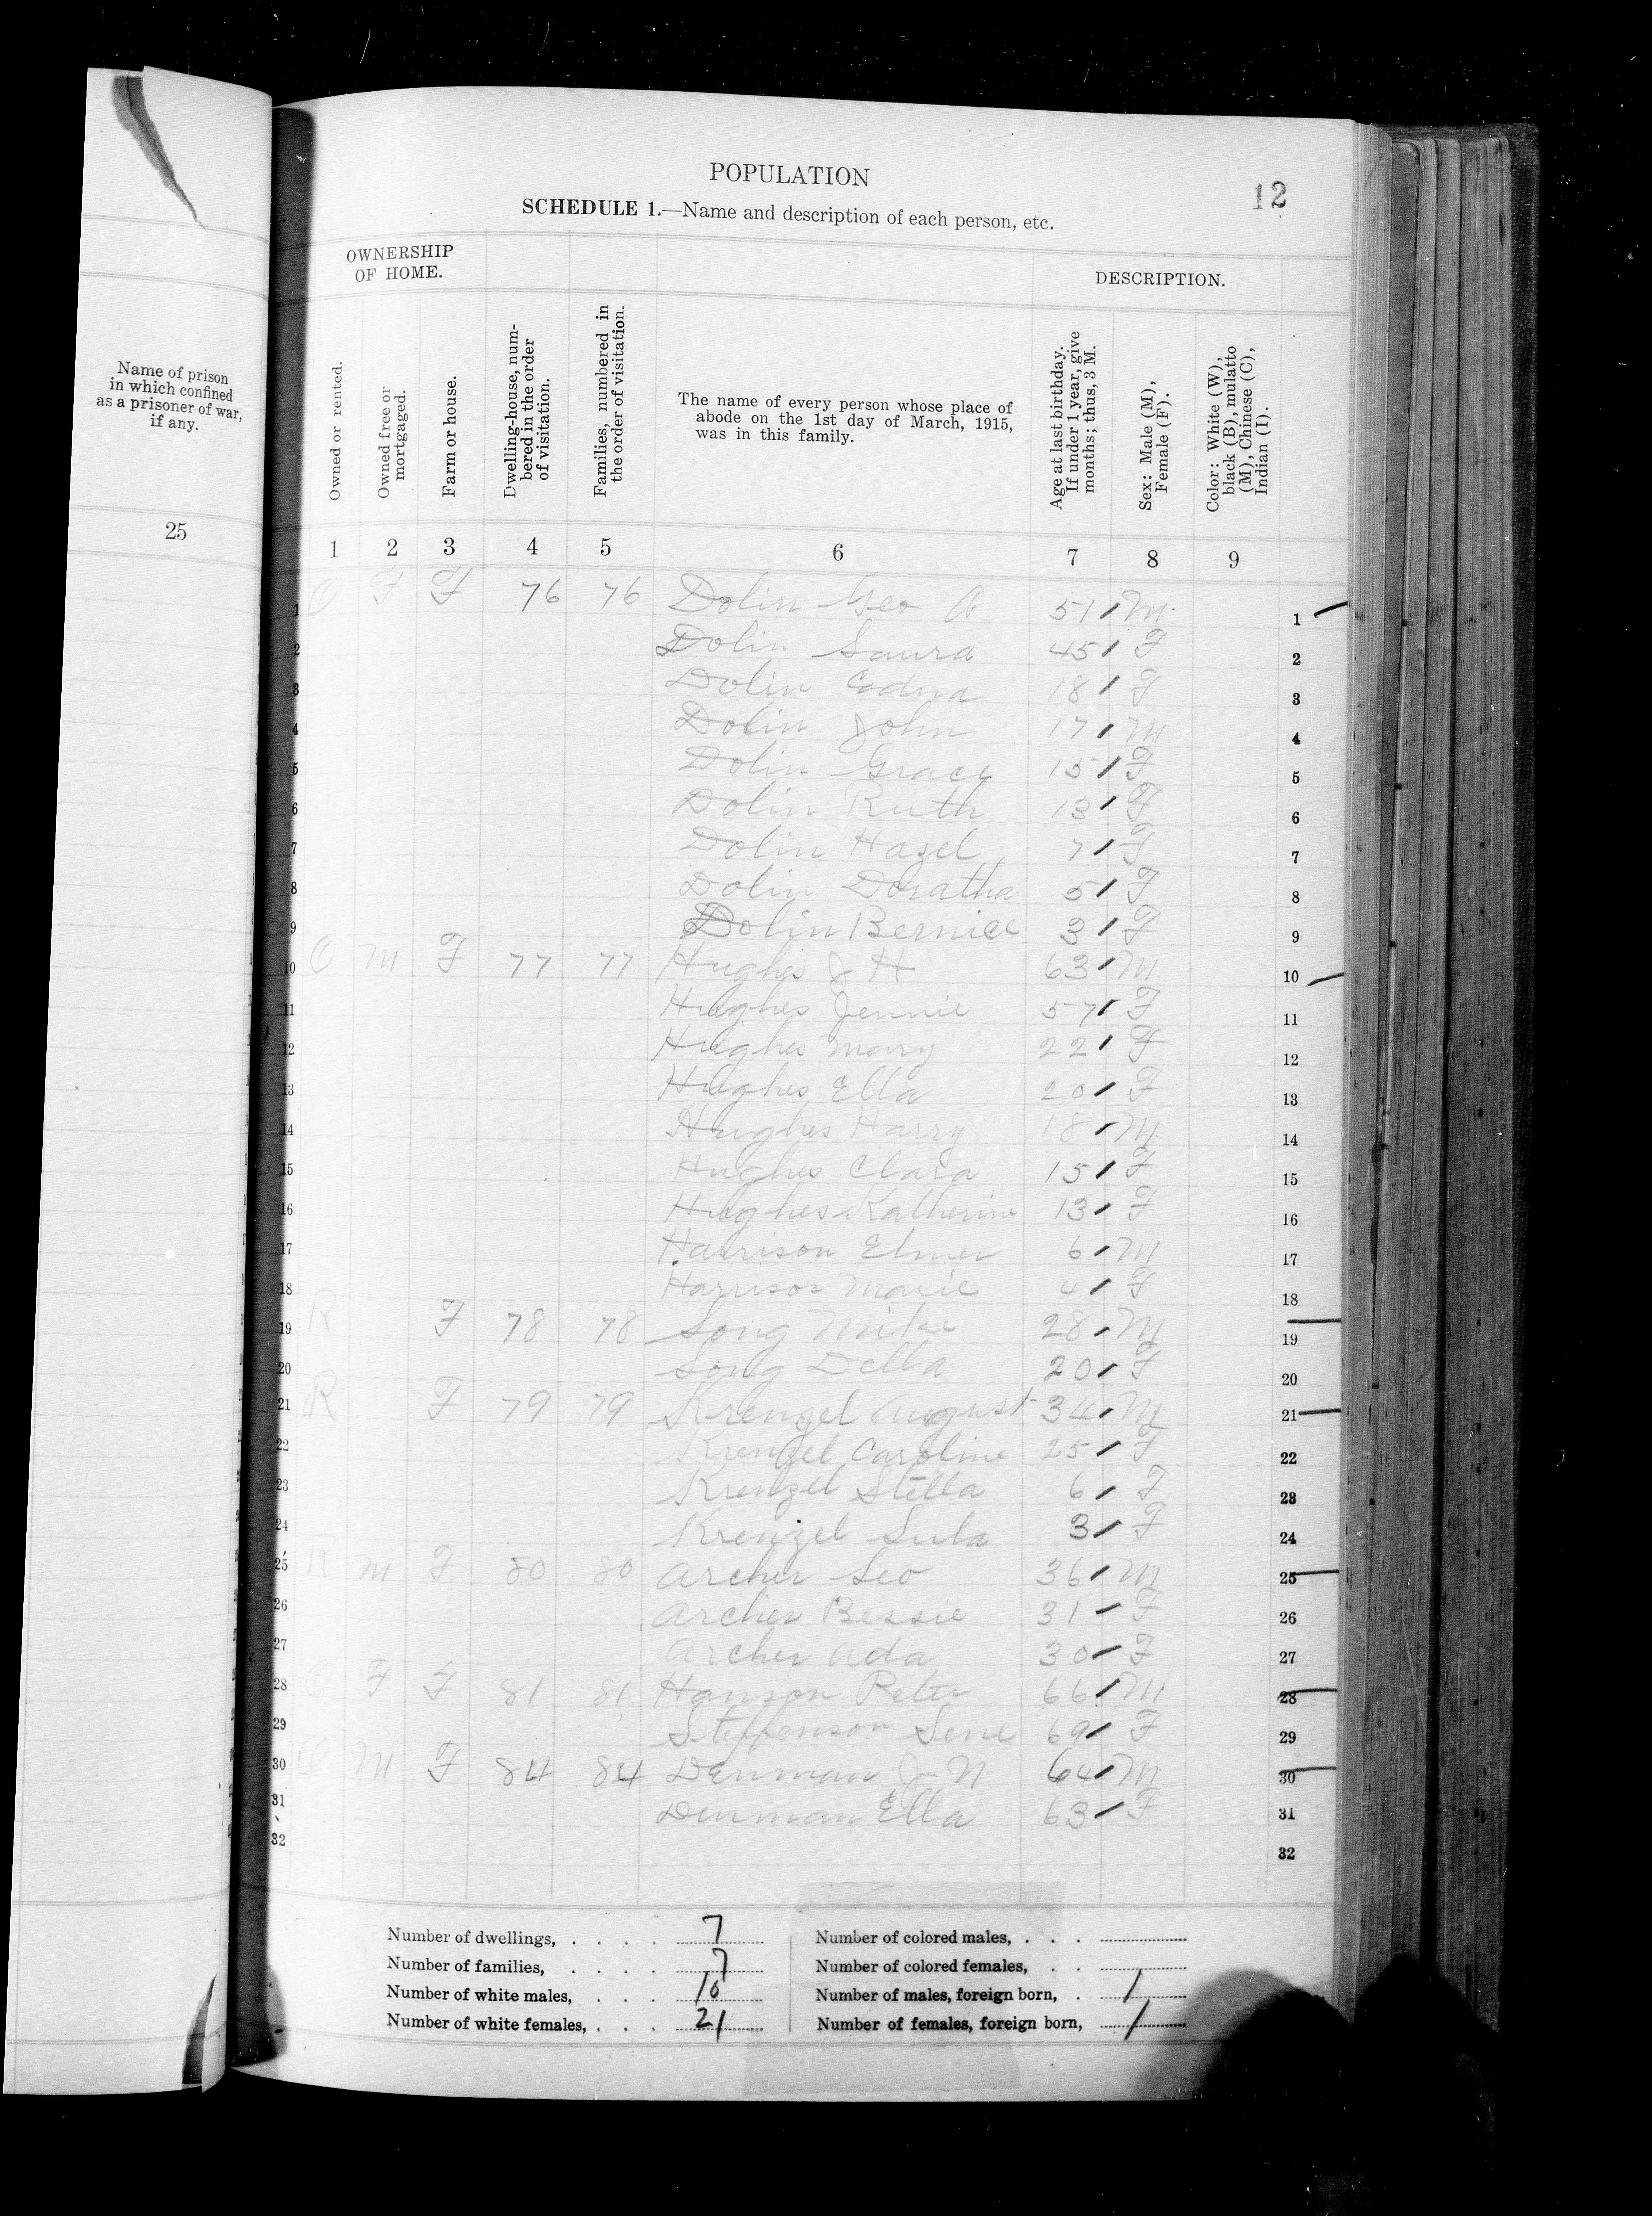 Name of prison
in which confined
as a prisoner of war,
if any.
25
POPULATION
12
SCHEDULE 1.—Name and description of each person, etc.
OWNERSHIP
OF HOME.
DESCRIPTION.
Owned or rented.
Owned free or
mortgaged.
Farm or house.
Dwelling-house, num-
bered in the order
of visitation.
Families, numbered in
the order of visitation.
The name of every person whose place of
abode on the 1st day of March, 1915,
was in this family.
Age at last birthday.
If under 1 year, give
months; thus, 3 M.
Sex: Male (M),
Female (F).
Color: White (W),
black (B), mulatto
(M), Chinese (C),
Indian (I).
1 2 3 4 5 6 7 8 9
1 O F F 76 76 Dolin Geo A 51 M 1
2 Dolin Laura 45 F 2
3 Dolin Edna 18 F 3
4 Dolin John 17 M 4
5 Dolin Grace 15 F 5
6 Dolin Ruth 13 F 6
7 Dolin Hazel 7 F 7
8 Dolin Doratha 5 F 8
9 Dolin Bernice 3 F 9
10 O M F 77 77 Hughes J H 63 M 10
11 Hughes Jennie 57 F 11
12 Hughes Mary 22 F 12
13 Hughes Ella 20 F 13
14 Hughes Harry 18 M 14
15 Hughes Clara 15 F 15
16 Hughes Katherine 13 F 16
17 Harrison Elmer 6 M 17
18 Harrison Marie 4 F 18
19 R F 78 78 Long Mike 28 M 19
20 Long Della 20 F 20
21 R F 79 79 Krenzel August 34 M 21
22 Krenzel Caroline 25 F 22
23 Krenzel Stella 6 F 23
24 Krenzel Lula 3 F 24
25 R M F 80 80 Archer Leo 36 M 25
26 Archer Bessie 31 F 26
27 Archer Ada 30 F 27
28 O F F 81 81 Hanson Peter 66 M 28
29 Steffenson Sene 69 F 29
30 O M F 84 84 Denman J N 64 M 30
31 Denman Ella 63 F 31
32 32
Number of dwellings, . . . . 7 Number of colored males, . . .
Number of families, . . . . 7 Number of colored females, . .
Number of white males, . . . 10 Number of males, foreign born, . 1
Number of white females, . . . 21 Number of females, foreign born, 1